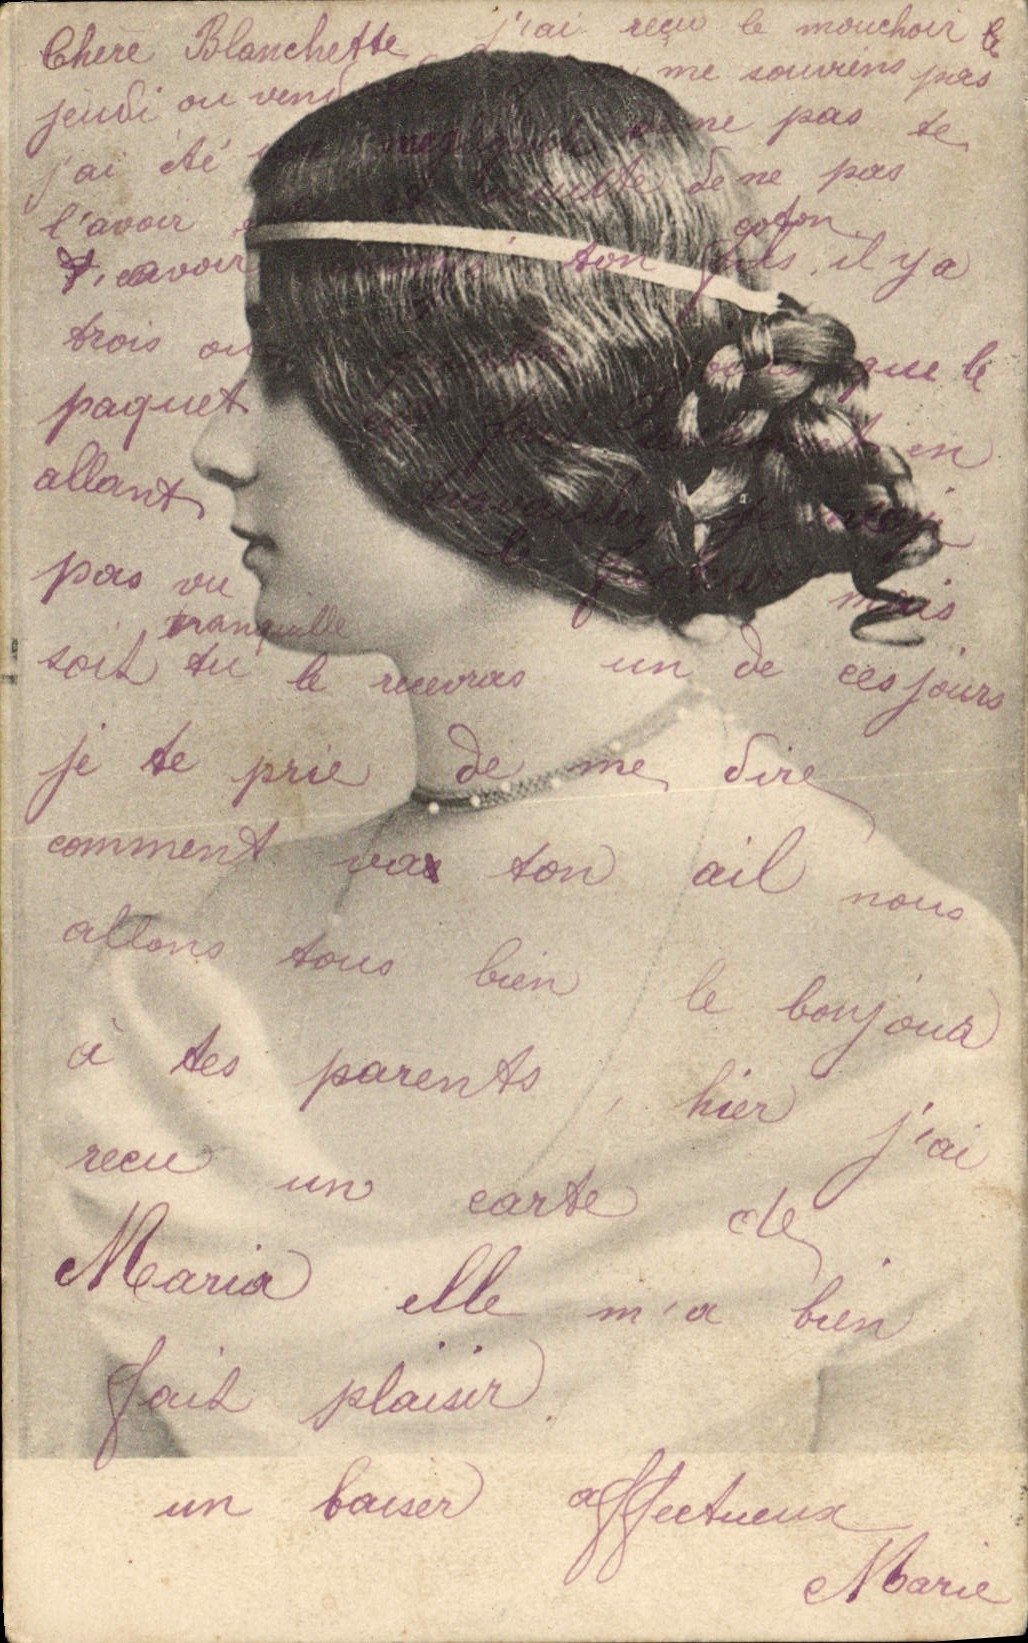 Chère Blanchette j'ai reçu le mouchoir le
jeudi ou me souviens pas
j'ai été ne pas te
l'avoir de ne pas
avoir ton fils coton il y a
trois ou que le
paquet en
allant je
pas vu le facteur mais
soit tranquille tu le recevras un de ces jours
je te prie de me dire
comment va ton ail nous
allons tous bien le bonjour
à tes parents, hier j'ai
recu un carte de
Maria elle m'a bien
fait plaisir
un baiser affectueux
Marie